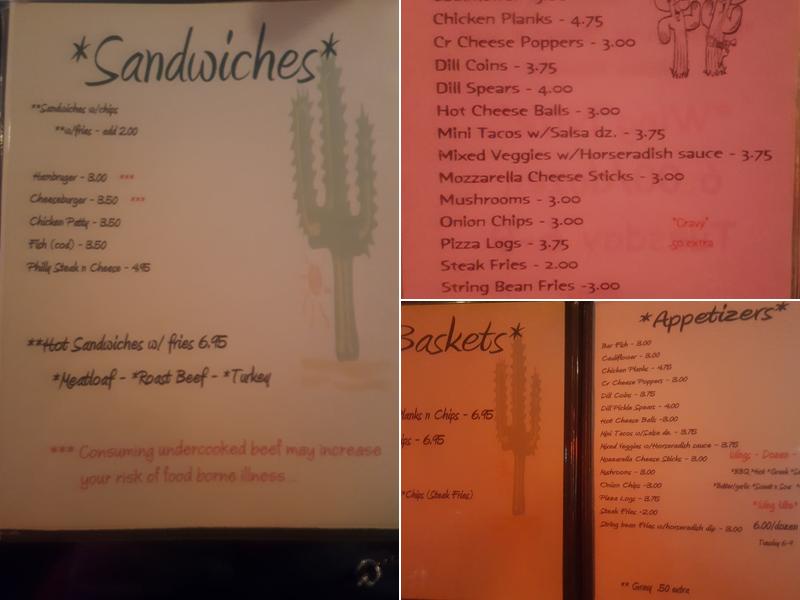 *Sandwiches*
**Sandwiches w/chips
**w/fries - add 2.00
Hambruger - 3.00 ***
Cheeseburger - 3.50 ***
Chicken Patty - 3.50
Fish (cod) - 3.50
Philly Steak n Cheese - 4.95
**Hot Sandwiches w/ fries 6.95
*Meatloaf - *Roast Beef - *Turkey
*** Consuming undercooked beef may increase
your risk of food borne illness...
Chicken Planks - 4.75
Cr Cheese Poppers - 3.00
Dill Coins - 3.75
Dill Spears - 4.00
Hot Cheese Balls - 3.00
Mini Tacos w/Salsa dz. - 3.75
Mixed Veggies w/Horseradish sauce - 3.75
Mozzarella Cheese Sticks - 3.00
Mushrooms - 3.00
Onion Chips - 3.00 "Gravy"
Pizza Logs - 3.75 .50 extra
Steak Fries - 2.00
String Bean Fries -3.00
Baskets*
Planks n Chips - 6.95
ps - 6.95
*Chips (Steak Fries)
*Appetizers*
Bar Fish - 3.00
Cauliflower - 3.00
Chicken Planks - 4.75
Cr Cheese Poppers - 3.00
Dill Coins - 3.75
Dill Pickle Spears - 4.00
Hot Cheese Balls -3.00
Mini Tacos w/Salsa dz. - 3.75
Mixed Veggies w/Horseradish sauce - 3.75
Mozzarella Cheese Sticks - 3.00
Wings - Dozen -
*BBQ *Hot *Greek *
*Butter/garlic *Sweet n Sour
Onion Chips -3.00
Pizza Logs - 3.75
Steak Fries -2.00
String Bean Fries w/horseradish dip - 3.00
6.00/dozen
Tuesday 6-9
** Gravy .50 extra